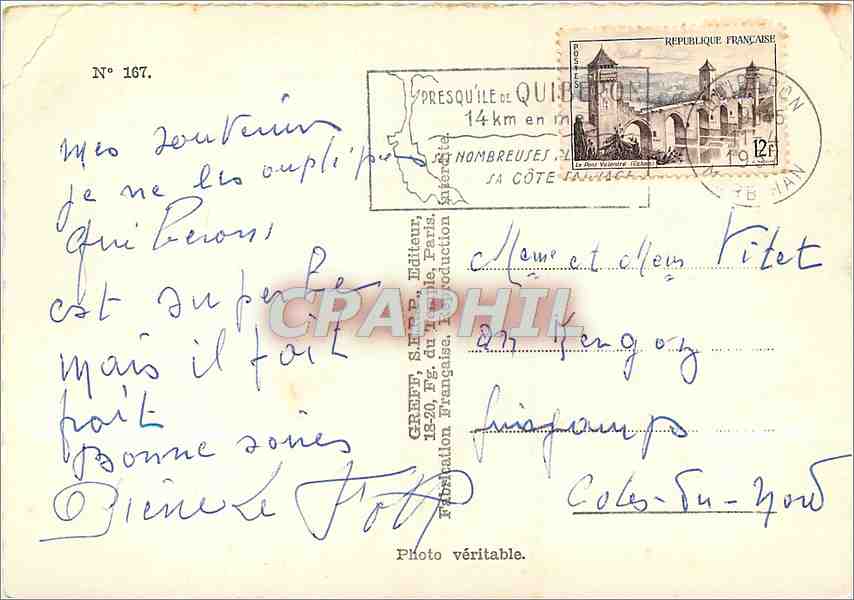 N° 167.
REPUBLIQUE FRANÇAISE
POSTES
12F
Le Pont Valentré (Cahors)
PRESQU'ILE DE QUIBERON
14 km en m
SES NOMBREUSES PL
SA CÔTE SAUVAGE
QUIBERON
MORBIHAN
mes souvenirs
je ne les oublie pas
Quiberons
est superbe
mais il fait
froit
Bonne soirés
Pierre Le
Meme et Mem Vitet
an Kergoz
guingamps
Cotes-du-Nord
GREFF, S.E.R.P., Editeur,
18-20, Fg. du Temple, Paris.
Fabrication Française. Reproduction interdite.
CPAPHIL
Photo véritable.